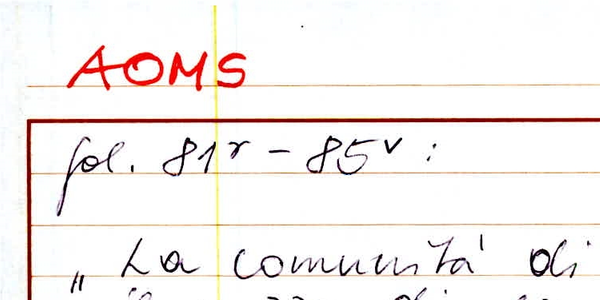 AOMS
fol. 81r - 85v :
„ La comunità di